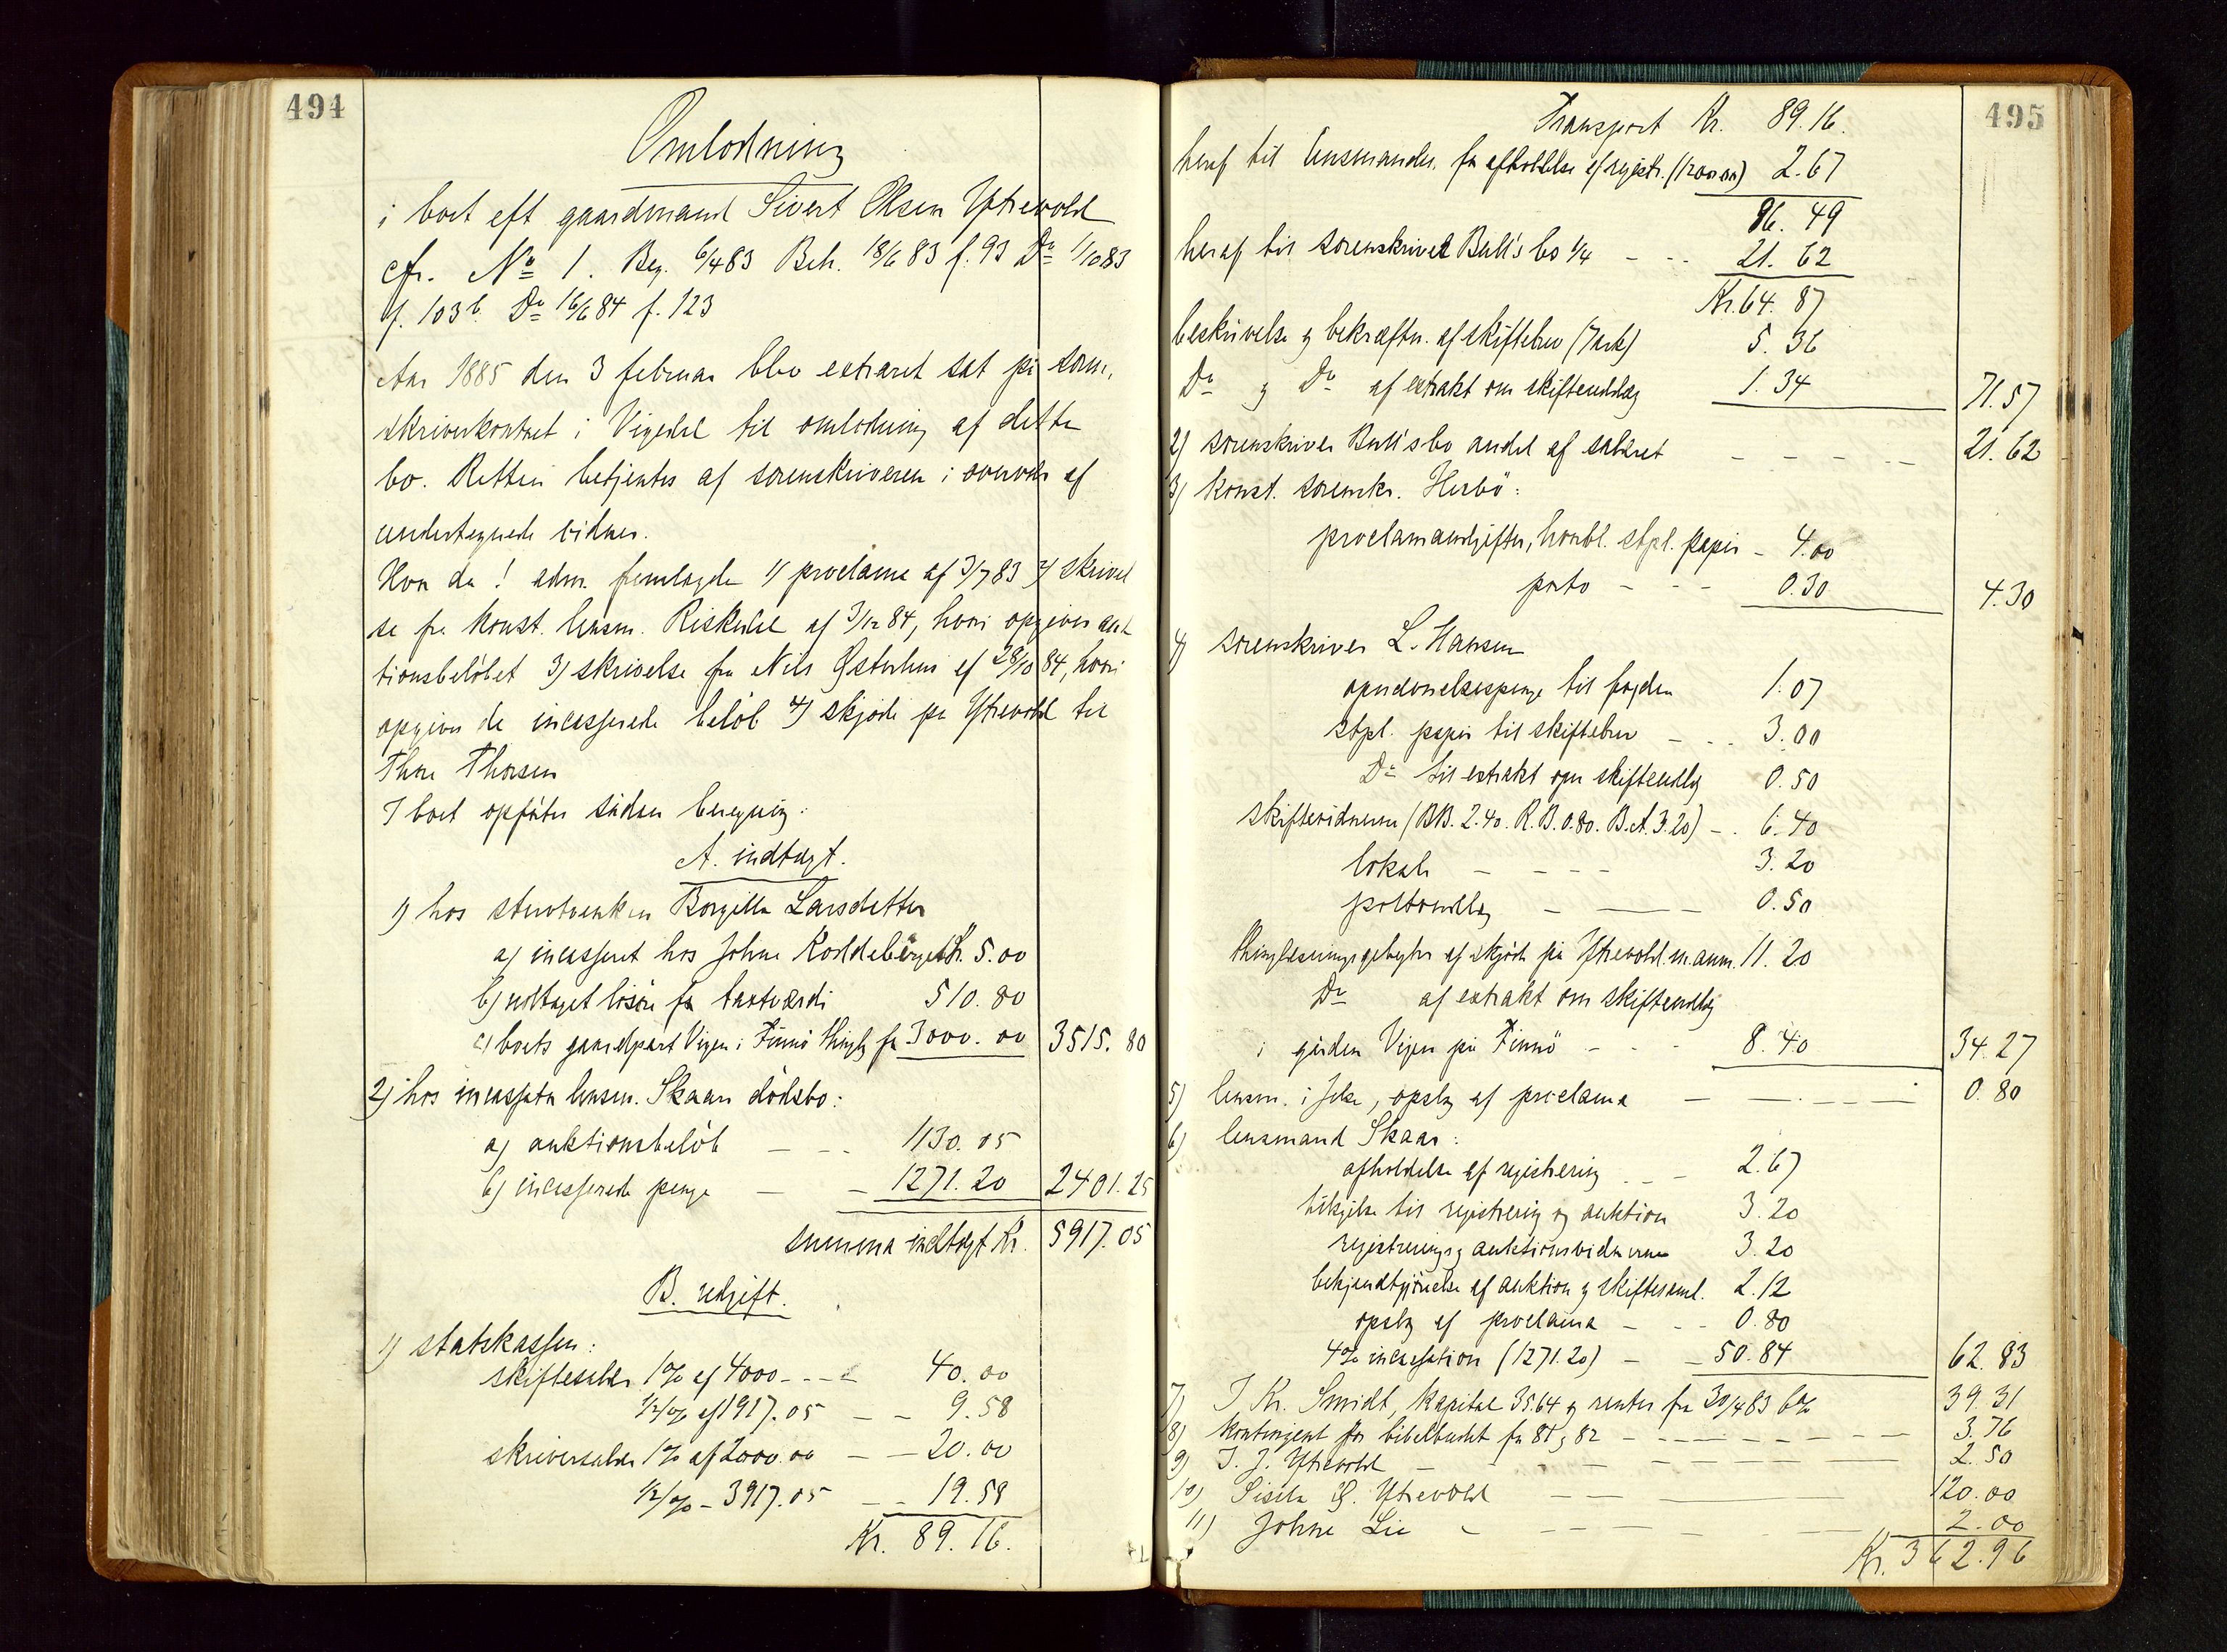 494
Omlodning
i boet eft gaardmand Sivert Olsen Ytrevold
cfr. No 1. Beg. 6/4 83 Beh. 18/6 83 f. 93 Do 1/10 83
f. 103b. Do 16/6 84 f. 123
Aar 1885 den 3 februar blev extraret sat på soren,
skriverkontoret i Vigedal til omlodning af dette
bo. Retten betjentes af sorenskriveren i overvær af
undertegnede vidner.
Hvor da! adm. fremlagde 1) proclama af 3/7 83 2) skrivel
se fra konst. lensm. Riskedal af 3/12 84, hvori opgives auk
tionsbelöbet 3) skrivelse fra Nils Østerhus af 28/10 84, hvori
opgives de incasserede belöb 4) skjöde på Ytrevold til
Thore Thorsen
I boet opförtes sådan beregning:
A. indtægt.
1) hos stervbenken Borgilla Larsdatter
a) incasseret hos Johne Koldeberget Kr. 5.00
b) udtaget lösöre for taxtværdi 510.80
c) boets gaardpart Vigen i Finnö thinglag for 3000.00 3515.80
2) hos incassator lensm. Skaars dödsbo:
a) auktionsbelöb - - - 1130.05
b) incasserede penge - - 1271.20 2401.25
summa indtægt Kr. 5917.05
B. udgift.
1) statskassen:
skiftesalær 1% af 4000 - - - - 40.00
1/2% af 1917.05 - - 9.58
skriversalær 1% af 2000.00 - - 20.00
1/2% - 3917.05 - - 19.58
Kr. 89.16.
495
Transport Kr. 89.16.
heraf til lensmanden for afholdelse af registr. (1200.00) 2.67
86.49
heraf til sorenskriver Bull's bo 1/4 - - - 21.62
Kr. 64.87
beskrivelse og bekræftn. af skiftebrev (7 ark) 5.36
Do og Do af extrakt om skifteudlæg 1.34 71.57
2) sorenskriver Bull's bo andel af salæret - - - - - 21.62
3) konst. sorenskr. Herbö:
proclamaudgifter, honbl. stpl. papir - 4.00
porto - - - 0.30 4.30
4) sorenskriver L. Hansen
til fogden 1.07
stpl. papir til skiftebrev - - - 3.00
Do til extrakt om skifteudlæg 0.50
skiftevidnerne (BB. 2.40. R.B. 0.80. B.A. 3.20) - . 6.40
lokale - - - - 3.20
portoudlæg - - - 0.50
thinglæsningsgebyhr af skjöde på Ytrevold m. anm. 11.20
Do af extrakt om skifteudlæg
i gården Vigen på Finnö - - - 8.40 34.27
5) lensm. i Jelse, opslag af proclama - - - - - 0.80
6) lensmand Skaar:
afholdelse af registrering - - - 2.67
tilsigelse til registrering og auktion 3.20
registrerings og auktionsvidnerne 3.20
bekjendtgjörelse af auktion og skiftesaml. 2.12
opslag af proclama - - - 0.80
4% incassation (1271.20) - - 50.84 62.83
7) I Kr. Smidt, kapital 35.64 og renter fra 30/4 83 6% 39.31
8) kontingent for bibelbudet for 81 og 82 - - - - - - - - 3.76
9) T. J. Ytrevold - - - - - - - 2.50
10) Sisila S. Ytrevold - - - - 120.00
11) Johne Lie - - - - - - 2.00
Kr. 362.96